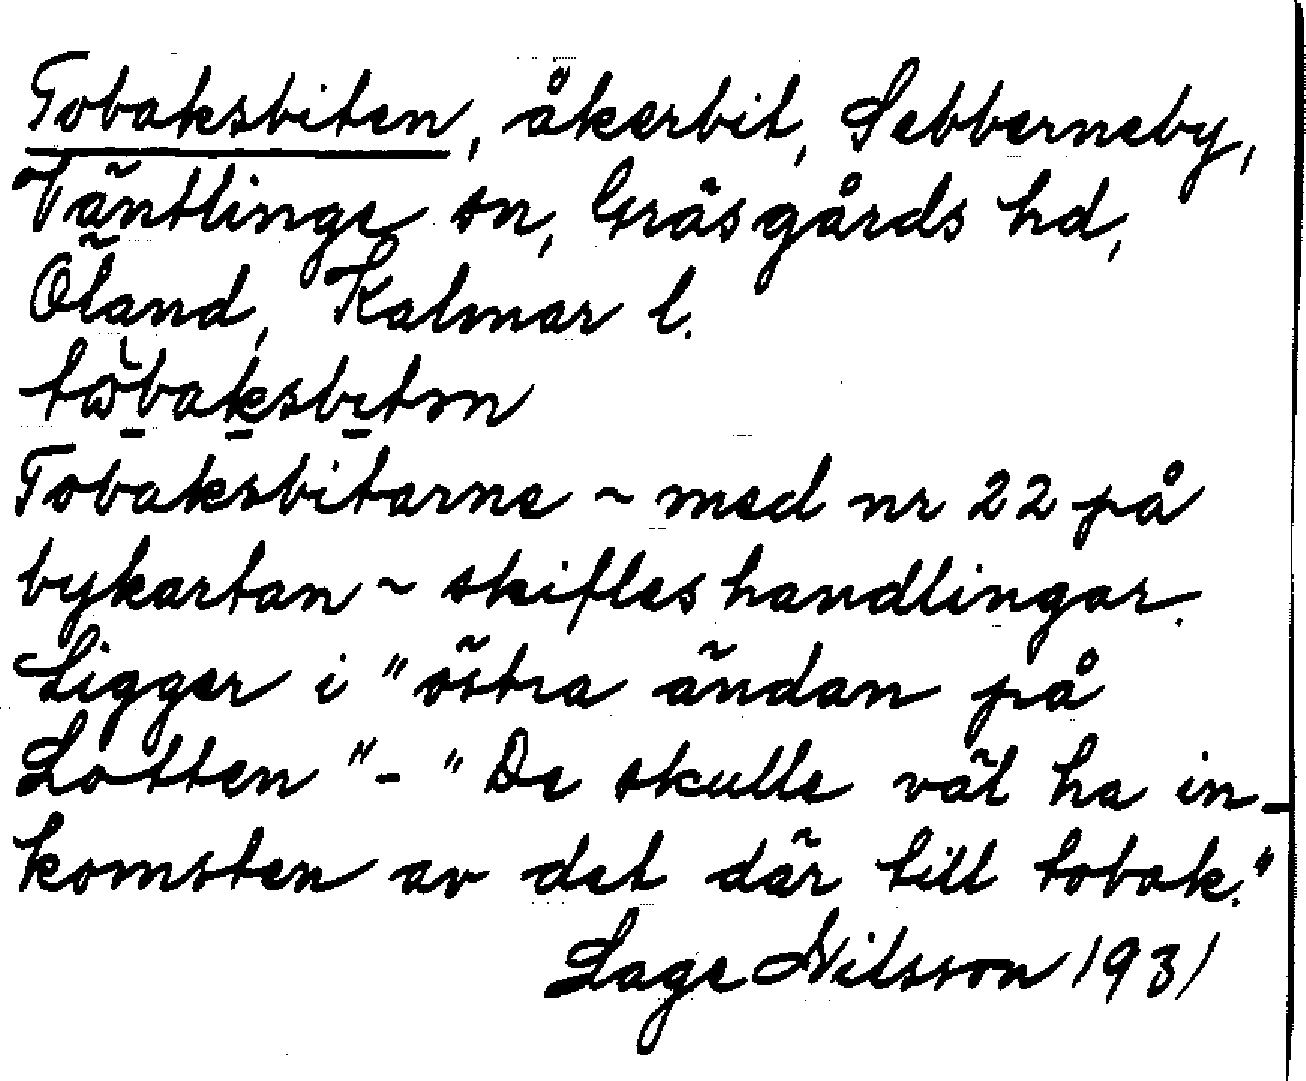 Tobaksbiten, åkerbit, Sebberneby,
Väntlinge sn, Gräsgårds hd,
Öland, Kalmar l.
Tobaksbitarne ~ med nr 22 på
bykartan ~ skifteshandlingar.
Ligger i "östra ändan på
Lotten" - "De skulle väl ha in-
komsten av det där till tobak."
Lage Nilsson 1931